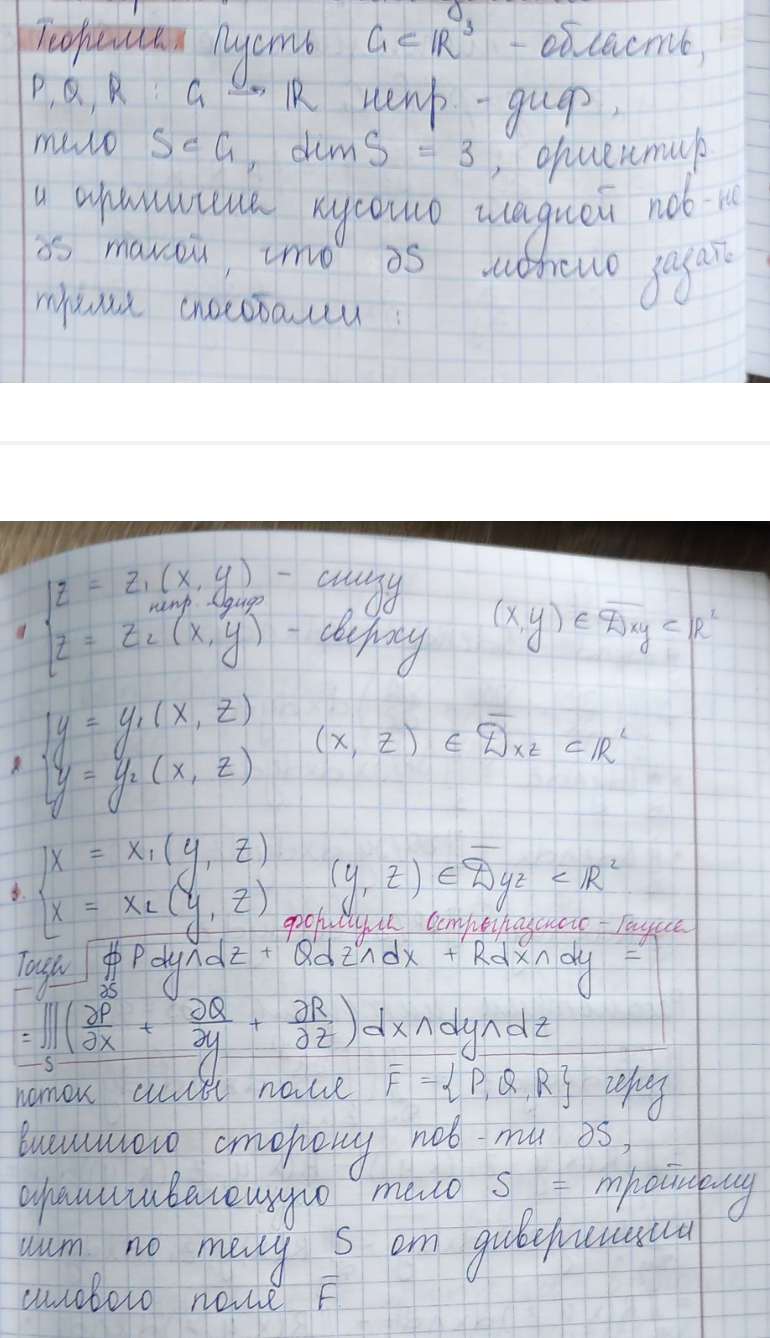 Теорема Пусть G ⊂ ℝ³ - область,
P, Q, R : G → ℝ непр. - диф,
тело S ⊂ G, dim S = 3, ориентир.
и ограничена кусочно гладкой пов-но
∂S такой, что ∂S можно задать
тремя способами :
z = z₁(x, y) - снизу
непр. - диф
(x, y) ∈ D̅xy ⊂ ℝ²
z = z₂(x, y) - сверху
y = y₁(x, z)
(x, z) ∈ D̅xz ⊂ ℝ²
y = y₂(x, z)
x = x₁(y, z)
(y, z) ∈ D̅yz ⊂ ℝ²
x = x₂(y, z)
формула Остроградского - Гаусса
Тогда ∯∂S P dy∧dz + Q dz∧dx + R dx∧dy =
= ∭S (∂P/∂x + ∂Q/∂y + ∂R/∂z) dx∧dy∧dz
поток силы поля F̅ = {P, Q, R} через
внешнюю сторону пов-ти ∂S,
ограничивающую тело S = тройному
инт. по телу S от дивергенции
силового поля F̅